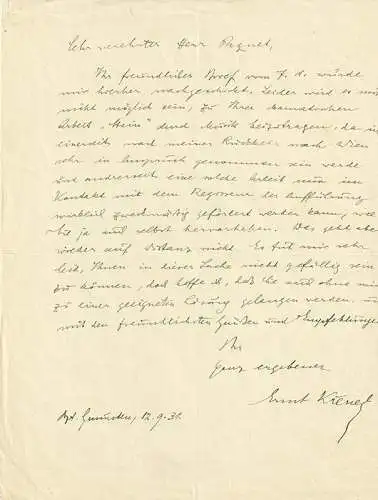 Sehr verehrter Herr Paquet,
Ihr freundlicher Brief vom 7. d. wurde
mir hierher nachgeschickt. Leider wird es mir
nicht möglich sein, zu Ihrer dramatischen
Arbeit „Stein“ durch Musik beizutragen, da ich
einerseits nach meiner Rückkehr nach Wien
sehr in Anspruch genommen sein werde
und andrerseits eine solche Arbeit nur im
Kontakt mit dem Regisseur der Aufführung
wirklich zweckmäßig gefördert werden kann, wie
Sie ja auch selbst hervorheben. Das geht aber
wieder auf Distanz nicht. Es tut mir sehr
leid, Ihnen in dieser Sache nicht gefällig sein
zu können, doch hoffe ich, daß Sie auch ohne mich
zu einer geeigneten Lösung gelangen werden, und
mit den freundlichsten Grüßen und Empfehlungen
Ihr
ganz ergebener
Ernst Krenek
Gmunden, 12.9.31.